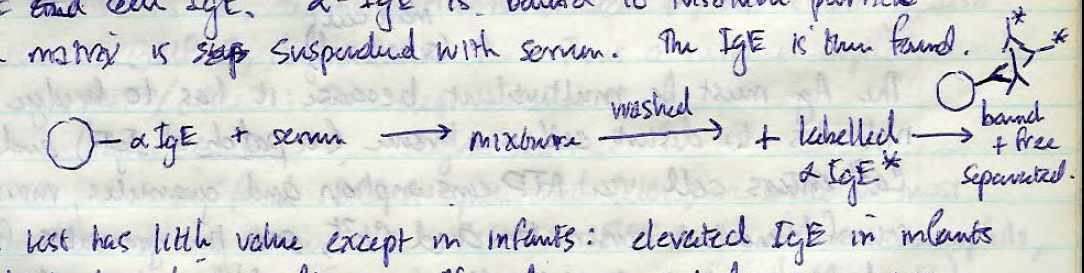 and cell IgE. α-IgE is bound to insoluble particle
matrix is suspended with serum. The IgE is then found.
α IgE + serum → mixture washed → + labelled → bound
α IgE* + free
separated.
test has little value except in infants: elevated IgE in infants